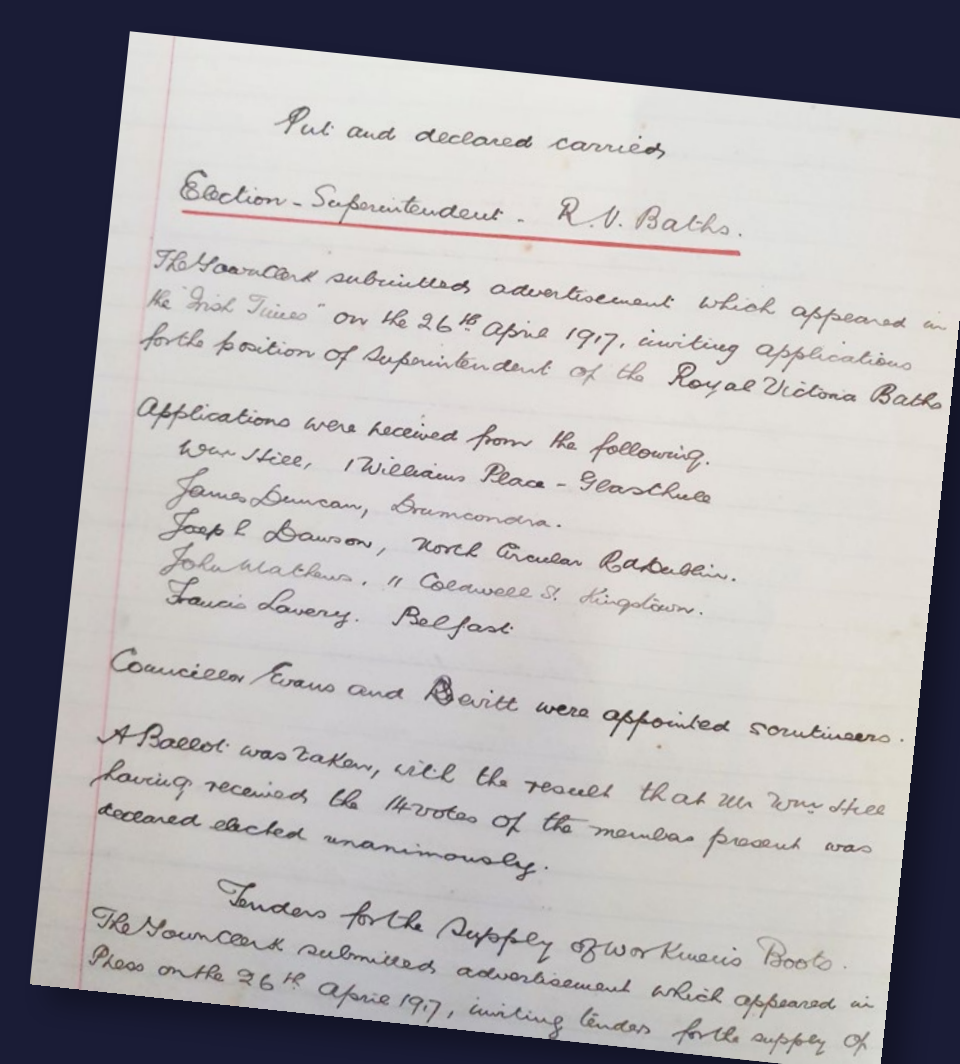 Put and declared carried
Election - Superintendent - R.V. Baths.
The Town Clerk submitted advertisement which appeared in
the "Irish Times" on the 26th April 1917, inviting applications
for the position of Superintendent of the Royal Victoria Baths
Applications were received from the following.
Wm Hill, 1 Williams Place - Glasthule
James Duncan, Drumcondra.
Joseph Dawson, North Circular Rd Dublin.
John Mathews, 11 Coldwell St. Kingstown.
Francis Lavery. Belfast
Councillor Evans and Devitt were appointed scrutineers.
A Ballot was taken, with the result that Mr Wm Hill
having received the 14 votes of the members present was
declared elected unanimously.
Tenders for the Supply of Workmens Boots.
The Town Clerk submitted advertisement which appeared in
Press on the 26th April 1917, inviting tenders for the supply of